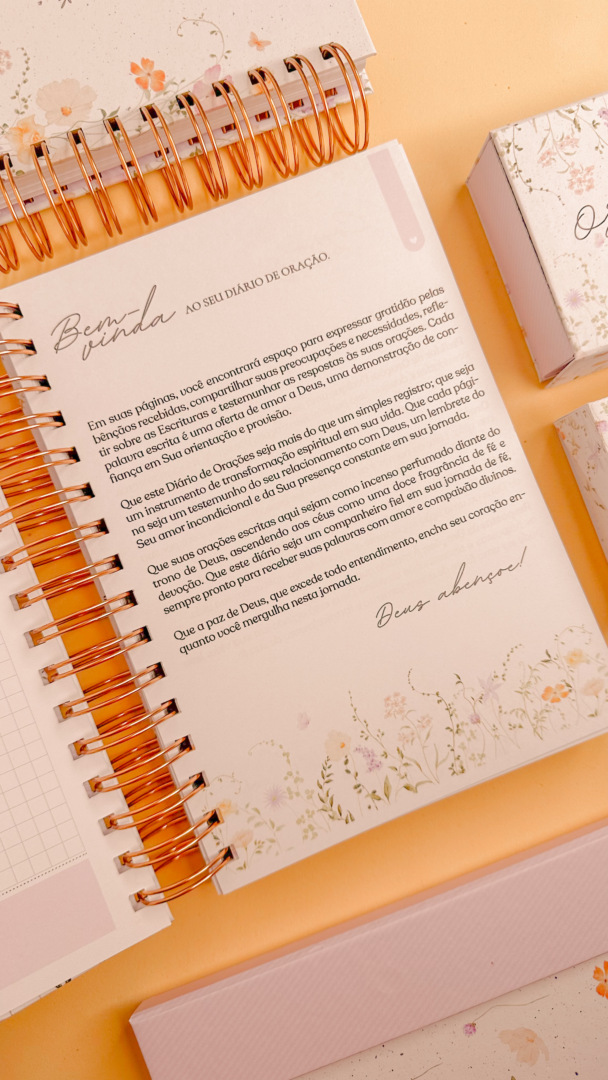 Bem-vinda AO SEU DIÁRIO DE ORAÇÃO.
Em suas páginas, você encontrará espaço para expressar gratidão pelas
bênçãos recebidas, compartilhar suas preocupações e necessidades, refle-
tir sobre as Escrituras e testemunhar as respostas às suas orações. Cada
palavra escrita é uma oferta de amor a Deus, uma demonstração de con-
fiança em Sua orientação e provisão.
Que este Diário de Orações seja mais do que um simples registro; que seja
um instrumento de transformação espiritual em sua vida. Que cada pági-
na seja um testemunho do seu relacionamento com Deus, um lembrete do
Seu amor incondicional e da Sua presença constante em sua jornada.
Que suas orações escritas aqui sejam como incenso perfumado diante do
trono de Deus, ascendendo aos céus como uma doce fragrância de fé e
devoção. Que este diário seja um companheiro fiel em sua jornada de fé,
sempre pronto para receber suas palavras com amor e compaixão divinos.
Que a paz de Deus, que excede todo entendimento, encha seu coração en-
quanto você mergulha nesta jornada.
Deus abençoe!